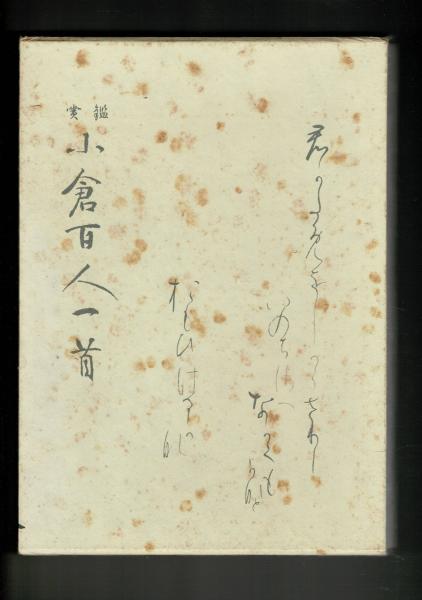 君かためをしからさりし
いのちさへ
なかくもかなと
おもひけるかな
鑑賞
小倉百人一首